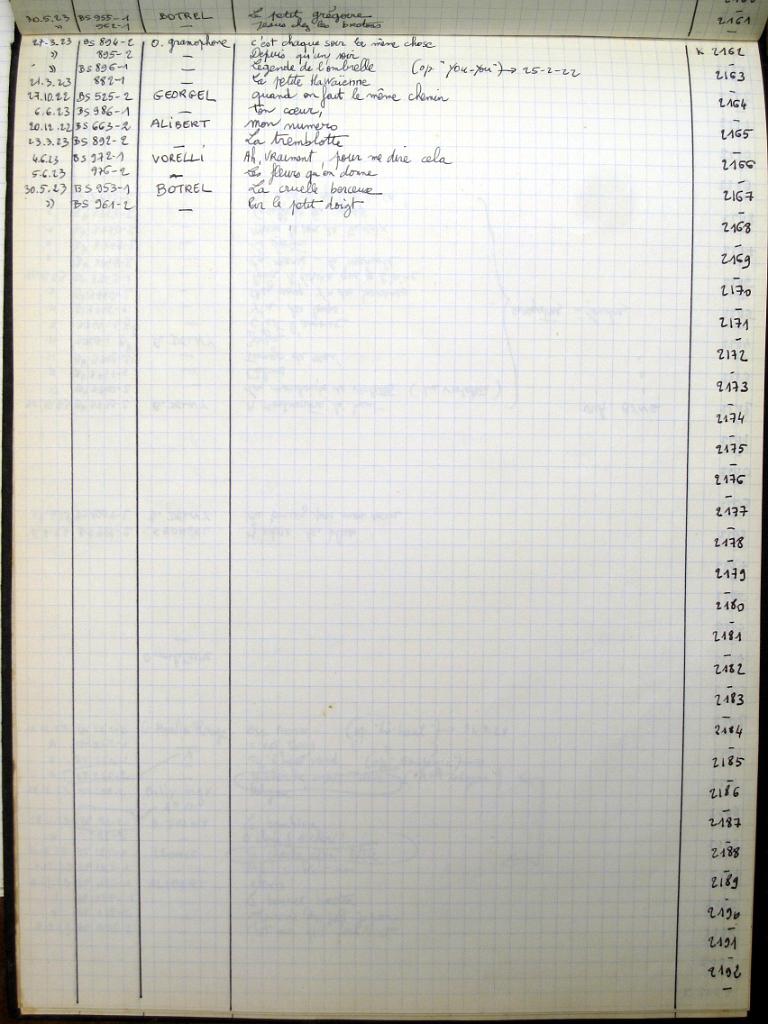 30.5.23 BS 955-1 BOTREL Le petit grégoire
" 962-1 — Jésus chez les bretons 2161
21.3.23 BS 894-2 O. gramophone C'est chaque soir la même chose
" 895-2 — Depuis qu'un soir K 2162
" BS 896-1 — Légende de l'ombrelle (op "You-You") → 25-2-22 –
21.3.23 882-1 — La petite Hawaïenne 2163
27.10.22 BS 525-2 GEORGEL quand on fait le même chemin –
6.6.23 BS 986-1 — ton cœur, 2164
20.12.22 BS 663-2 ALIBERT mon numero –
23.3.23 BS 892-2 — La tremblotte 2165
4.6.23 BS 972-1 VORELLI Ah, vraiment, pour me dire cela –
5.6.23 976-2 — Les fleurs qu'on donne 2166
30.5.23 BS 953-1 BOTREL La cruelle berceuse –
" BS 961-2 — Sur le petit doigt 2167
–
2168
–
2169
–
2170
–
2171
–
2172
–
2173
–
2174
–
2175
–
2176
–
2177
–
2178
–
2179
–
2180
–
2181
–
2182
–
2183
–
2184
–
2185
–
2186
–
2187
–
2188
–
2189
–
2190
–
2191
–
2192
–